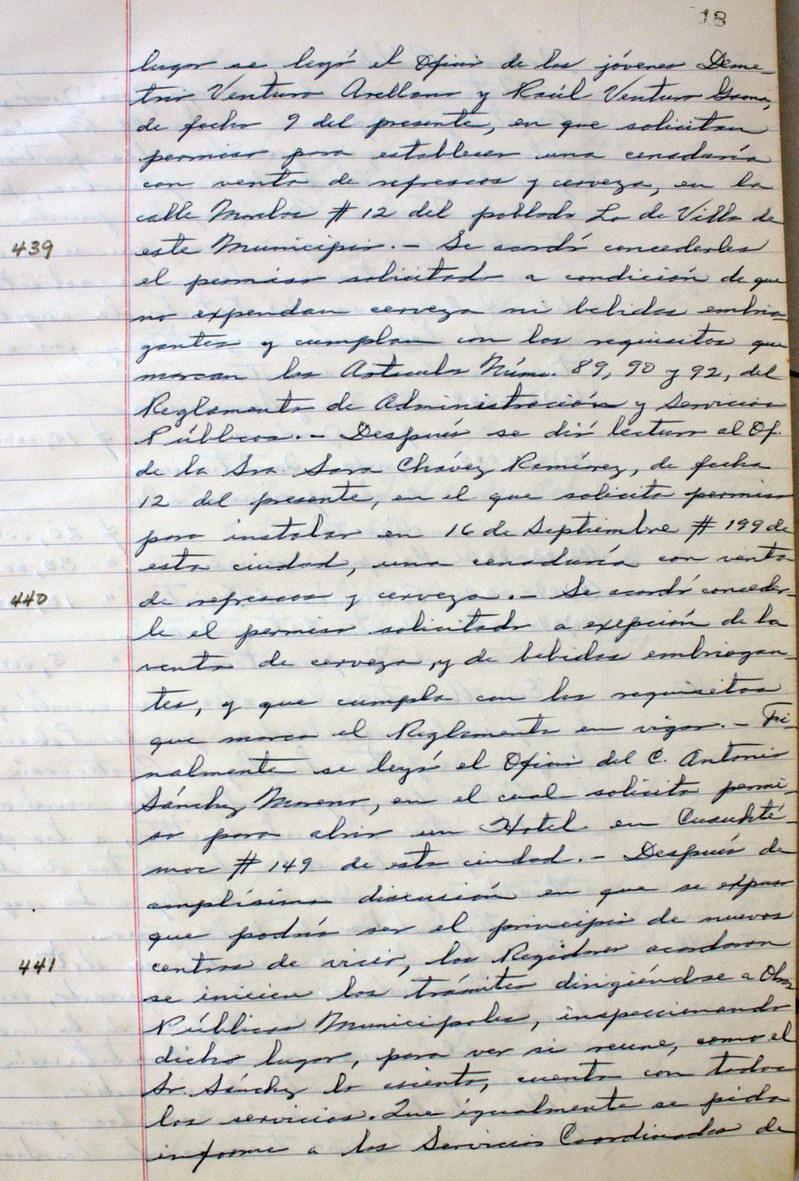 18
lugar se leyó el Oficio de los jóvenes Deme-
trio Ventura Arellano y Raúl Ventura
de fecha 9 del presente, en que solicitan
permiso para establecer una cenaduría
con venta de refrescos y cerveza, en la
calle Morelos # 12 del poblado Lo de Villa de
439 este Municipio.- Se acordó concederles
el permiso solicitado a condición de que
no expendan cerveza ni bebidas embria-
gantes y cumplan con los requisitos que
marcan los Artículos Núms. 89, 90 y 92, del
Reglamento de Administración y Servicios
Públicos.- Después se dió lectura al Of.
de la Sra. Sara Chávez Ramírez, de fecha
12 del presente, en el que solicita permiso
para instalar en 16 de Septiembre # 199 de
esta ciudad, una cenaduría con venta
440 de refrescos y cerveza.- Se acordó conceder-
le el permiso solicitado a exepción de la
venta de cerveza, y de bebidas embriagan-
tes, y que cumpla con los requisitos
que marca el Reglamento en vigor.- Fi-
nalmente se leyó el Oficio del C. Antonio
Sánchez Moreno, en el cual solicita permi-
so para abrir un Hotel en Cuauhté-
moc # 149 de esta ciudad.- Después de
amplísima discusión en que se expuso
que podría ser el principio de nuevos
441 centros de vicio, los Regidores acordaron
se inicien los trámites dirigiéndose a Obras
Públicas Municipales, inspeccionando
dicho lugar, para ver si reune, como el
Sr. Sánchez lo asienta, cuenta con todos
los servicios. Que igualmente se pida
informe a los Servicios Coordinados de